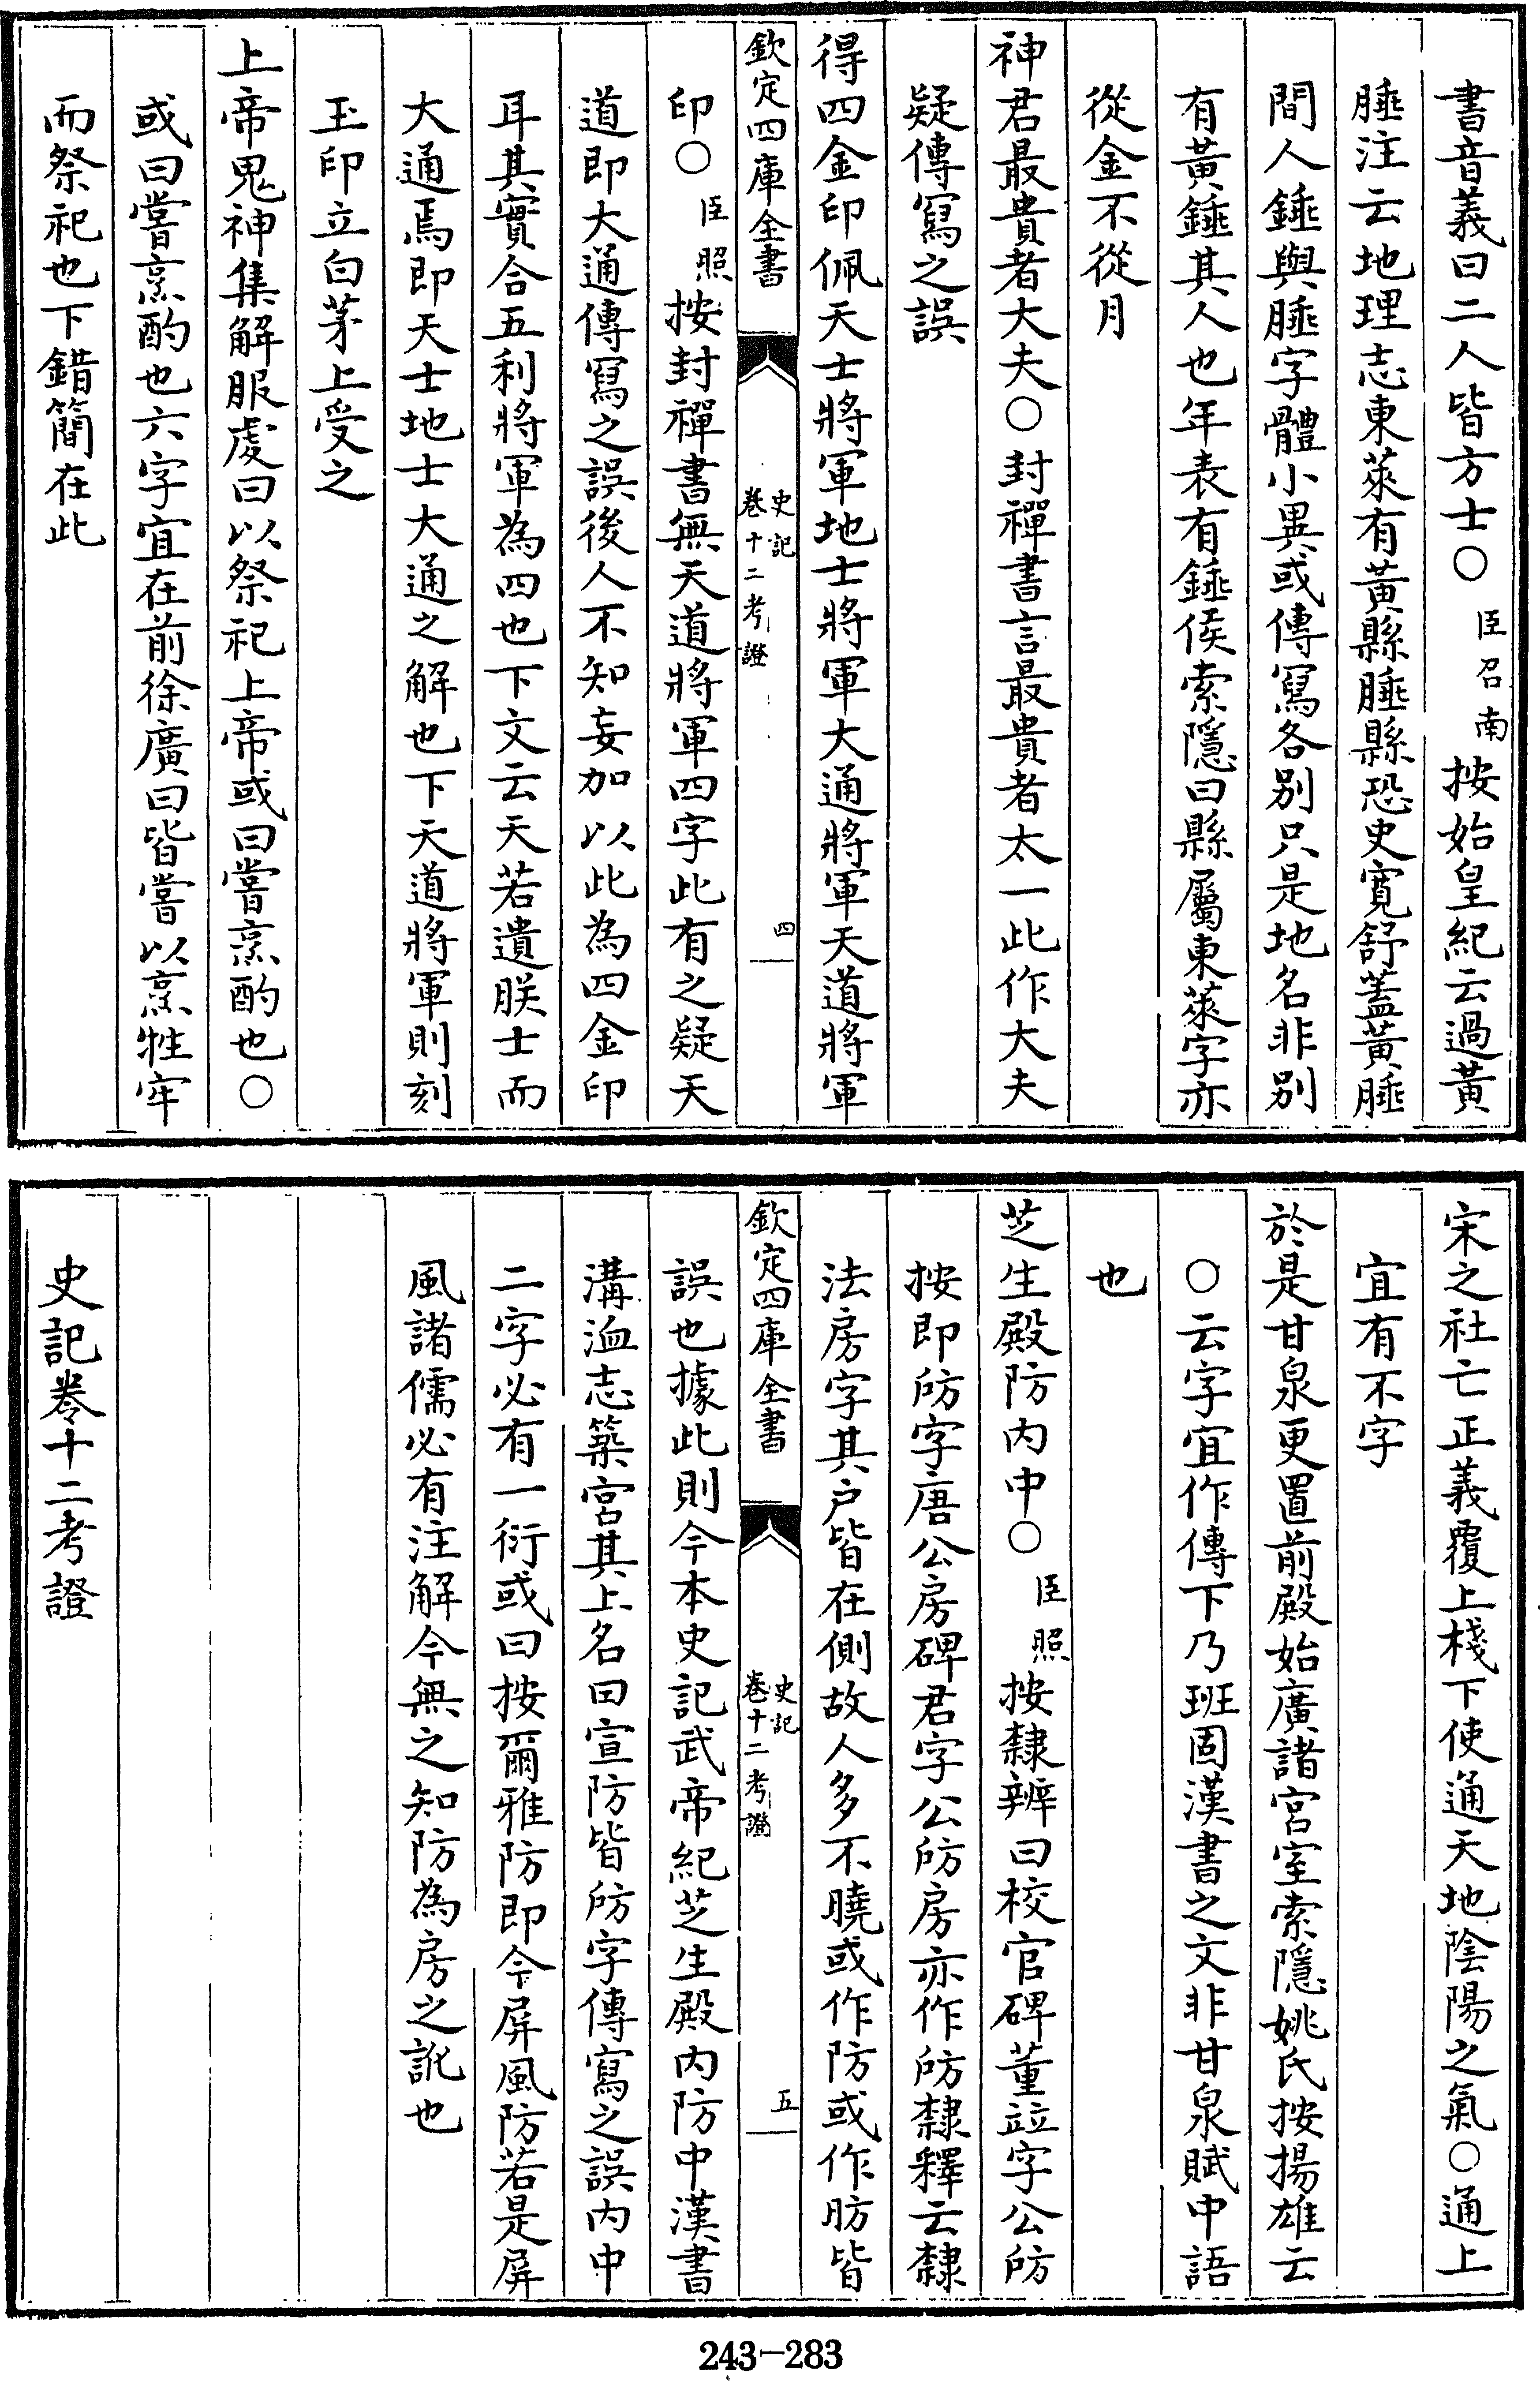 書音義曰二人皆方士〇臣召南按始皇紀云過黃
腄注云地理志東萊有黃縣腄縣恐史寬舒蓋黃腄
間人錘與腄字體小異或傳寫各別只是地名非別
有黃錘其人也年表有錘侯索隱曰縣屬東萊字亦
從金不從月
神君最貴者大夫〇封禪書言最貴者太一此作大夫
疑傳寫之誤
得四金印佩天士將軍地士將軍大通將軍天道將軍
欽定四庫全書
史記
卷十二考證
四
印〇臣照按封禪書無天道將軍四字此有之疑天
道即大通傳寫之誤後人不知妄加以此為四金印
耳其實合五利將軍為四也下文云天若遺朕士而
大通焉即天士地士大通之解也下天道將軍則刻
玉印立白茅上受之
上帝鬼神集解服虔曰以祭祀上帝或曰嘗烹酌也〇
或曰嘗烹酌也六字宜在前徐廣曰皆嘗以烹牲牢
而祭祀也下錯簡在此
宋之社亡正義覆上棧下使通天地陰陽之氣〇通上
宜有不字
於是甘泉更置前殿始廣諸宮室索隱姚氏按揚雄云
〇云字宜作傳下乃班固漢書之文非甘泉賦中語
也
芝生殿防内中〇臣照按隸辨曰校官碑董竝字公㕫
按即㕫字唐公房碑君字公㕫房亦作㕫隸釋云隸
法房字其户皆在側故人多不曉或作防或作肪皆
欽定四庫全書
史記
卷十二考證
五
誤也據此則今本史記武帝紀芝生殿内防中漢書
溝洫志築宮其上名曰宣防皆㕫字傳寫之誤内中
二字必有一衍或曰按爾雅防即今屏風防若是屏
風諸儒必有注解今無之知防為房之訛也
史記卷十二考證
243-283